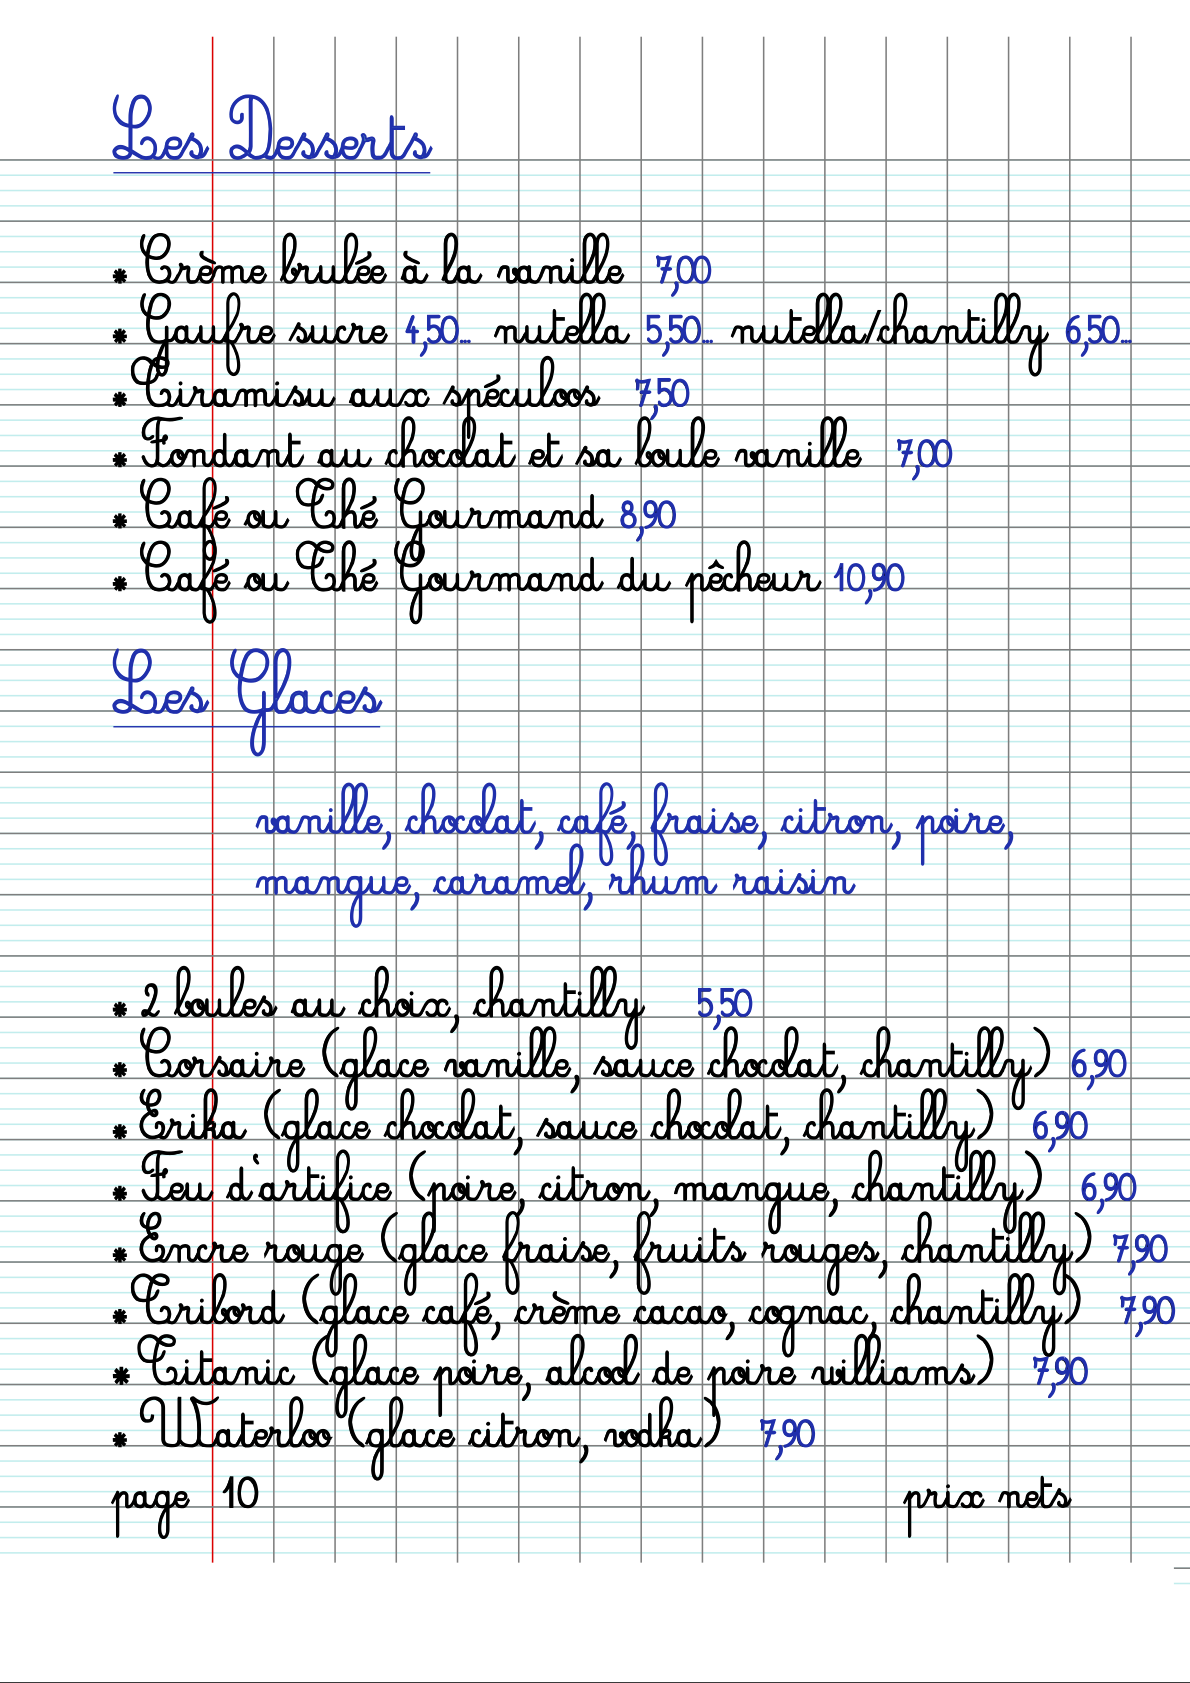 Les Desserts
* Crème brulée à la vanille 7,00
* Gaufre sucre 4,50... nutella 5,50... nutella/chantilly 6,50...
* Tiramisu aux spéculoos 7,50
* Fondant au chocolat et sa boule vanille 7,00
* Café ou Thé Gourmand 8,90
* Café ou Thé Gourmand du pêcheur 10,90
Les Glaces
vanille, chocolat, café, fraise, citron, poire,
mangue, caramel, rhum raisin
* 2 boules au choix, chantilly 5,50
* Corsaire (glace vanille, sauce chocolat, chantilly) 6,90
* Erika (glace chocolat, sauce chocolat, chantilly) 6,90
* Feu d'artifice (poire, citron, mangue, chantilly) 6,90
* Encre rouge (glace fraise, fruits rouges, chantilly) 7,90
* Tribord (glace café, crème cacao, cognac, chantilly) 7,90
* Titanic (glace poire, alcool de poire williams) 7,90
* Waterloo (glace citron, vodka) 7,90
page 10 prix nets